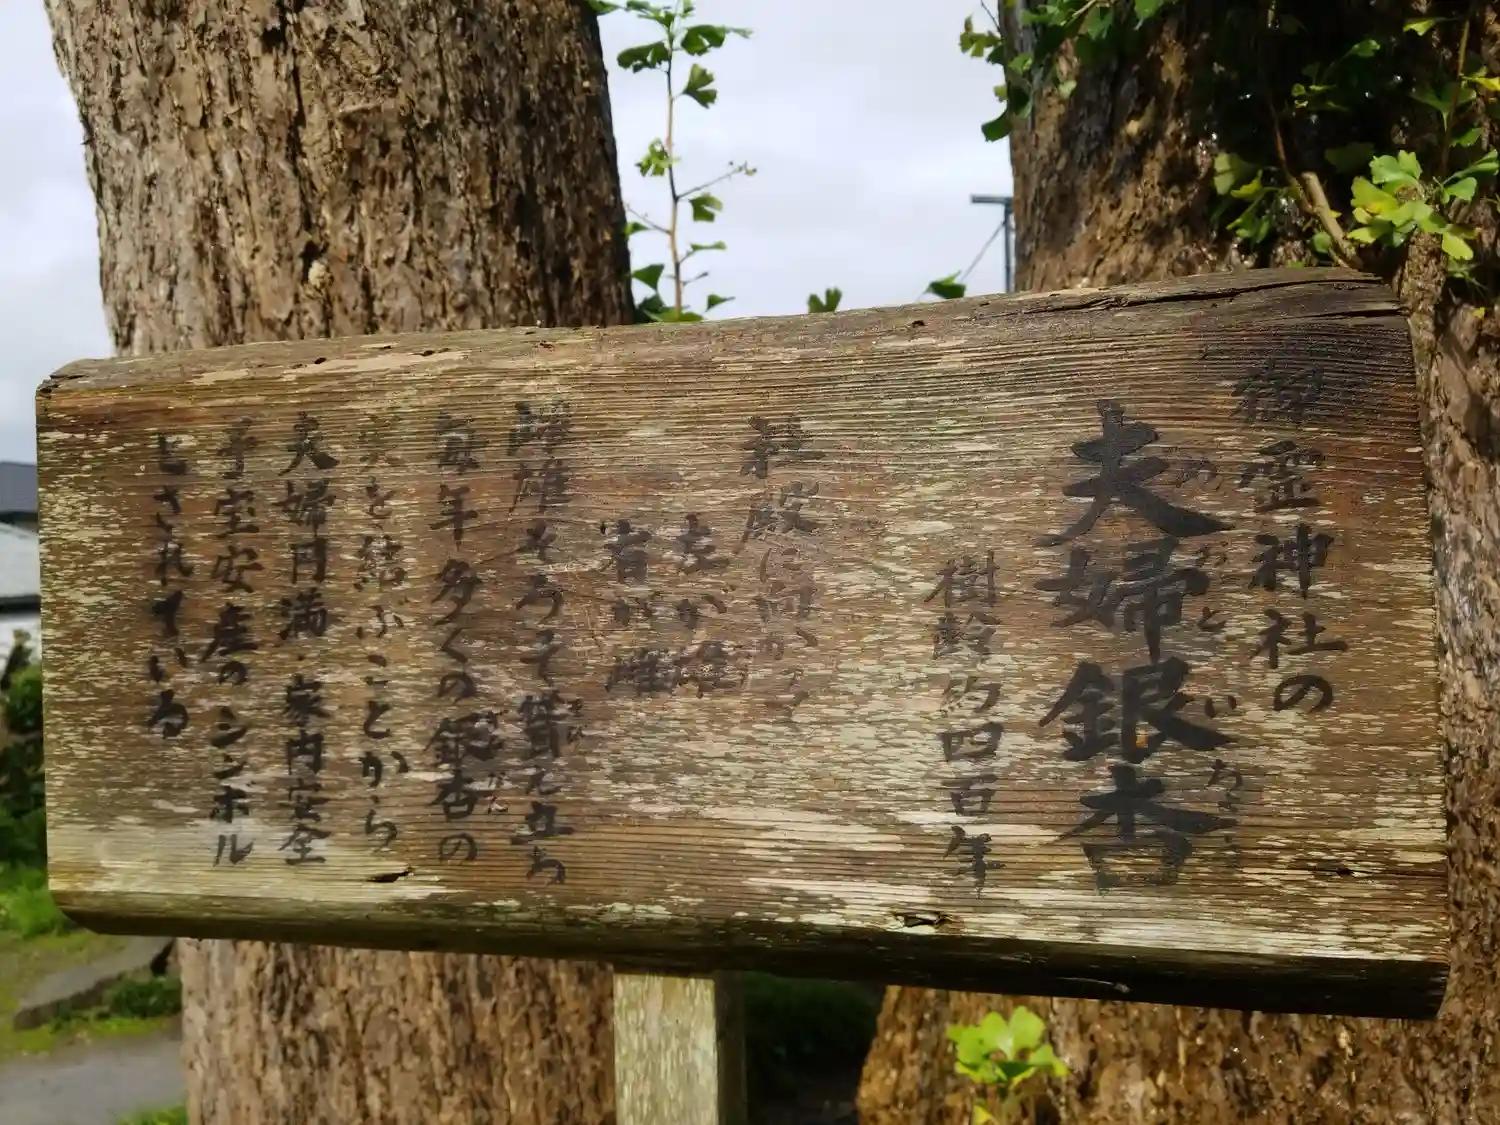 御霊神社の
夫婦銀杏
めおといちょう
樹齢約四百年
社殿に向かって
左が雄
右が雌
雌雄そろって聳え立ち
毎年多くの銀杏の
ぎんなん
実を結ぶことから
夫婦円満・家内安全
子宝安産のシンボル
とされている